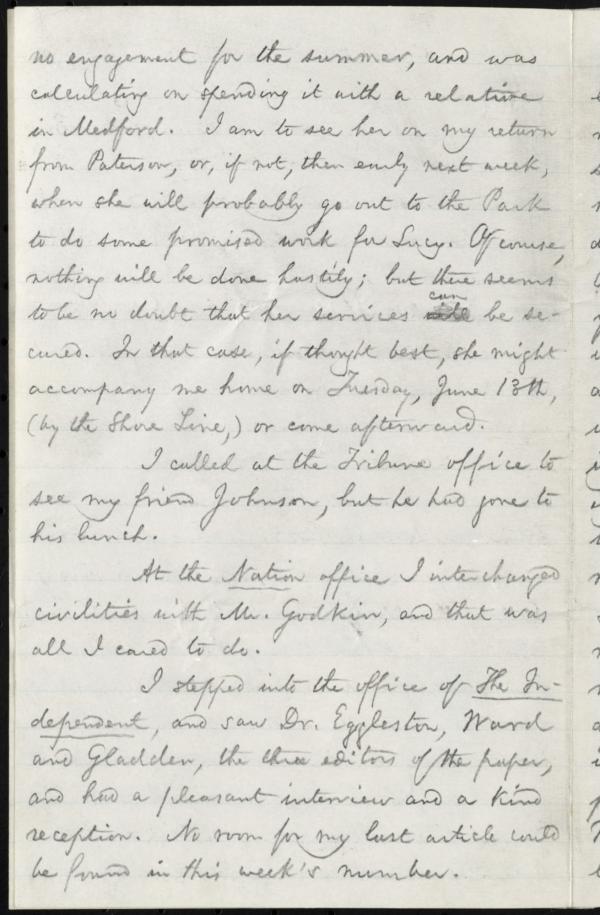 no engagement for the summer, and was
calculating on spending it with a relative
in Medford. I am to see her on my return
from Paterson, or, if not, then early next week,
when she will probably go out to the Park
to do some promised work for Lucy. Of course,
nothing will be done hastily; but there seems
to be no doubt that her services can be se-
cured. In that case, if thought best, she might
accompany me home on Tuesday, June 13th,
(by the Shore Line,) or come afterward.
I called at the Tribune office to
see my friend Johnson, but he had gone to
his lunch.
At the Nation office I interchanged
civilities with Mr. Godkin, and that was
all I cared to do.
I stepped into the office of The In-
dependent, and saw Dr. Eggleston, Ward
and Gladden, the three editors of the paper,
and had a pleasant interview and a kind
reception. No room for my last article could
be found in this week's number.